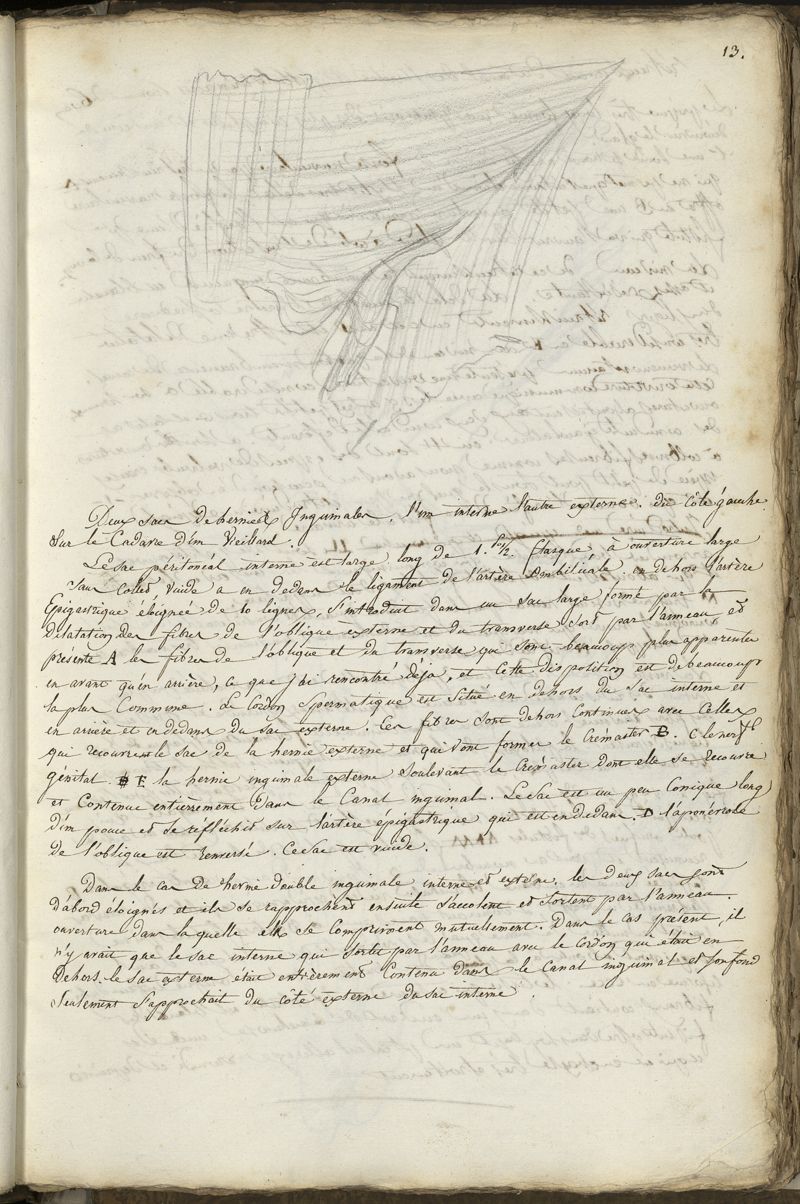 13.
Deux sacs de hernies Inguinales, l'un interne l'autre externe. du côté gauche
sur le Cadavre d'un Vieillard.
Le sac péritonéal interne est large long de 1. p. 1/2 flasque, à ouverture large
sans collet, vuide a en dedans le ligament de l'artère ombilicale. en dehors l'artère
Epigastrique éloignée de 10 lignes, s'introduit dans un sac large formé par la
dilatation des fibres de l'oblique externe et du transverse sort par l'anneau et
présente A les fibres de l'oblique et du transverse qui sont beaucoup plus apparentes
en avant qu'en arrière, ce que j'ai rencontré déjà, et cette disposition est de beaucoup
la plus Commune. Le Cordon Spermatique est situé en dehors du sac interne et
en arrière et en dedans du sac externe. Ces fibres sont dehors Continues avec Celles
qui recouvrent le sac de la hernie externe et qui vont former le Cremaster B. C le nerf
génital. E la hernie inguinale externe soulevant le Crémaster dont elle se recouvre
et Contenue entièrement dans le Canal inguinal. Le Sac est un peu Conique long
d'un pouce et se réfléchit sur l'artère epigastrique qui est en dedans. D l'aponévrose
de l'oblique est renversé. Ce sac est vuide.
Dans le cas De hernie double inguinale interne et externe, les deux sacs sont
d'abord éloignés et ils se rapprochent ensuite s'accolent et sortent par l'anneau
ouverture dans la quelle elles se Compriment mutuellement. Dans le cas présent, il
n'y avait que le sac interne qui sortit par l'anneau avec le Cordon qui était en
Dehors. le sac externe était entièrement Contenu dans le Canal inguinal et son fond
seulement s'approchait du côté externe du sac interne.